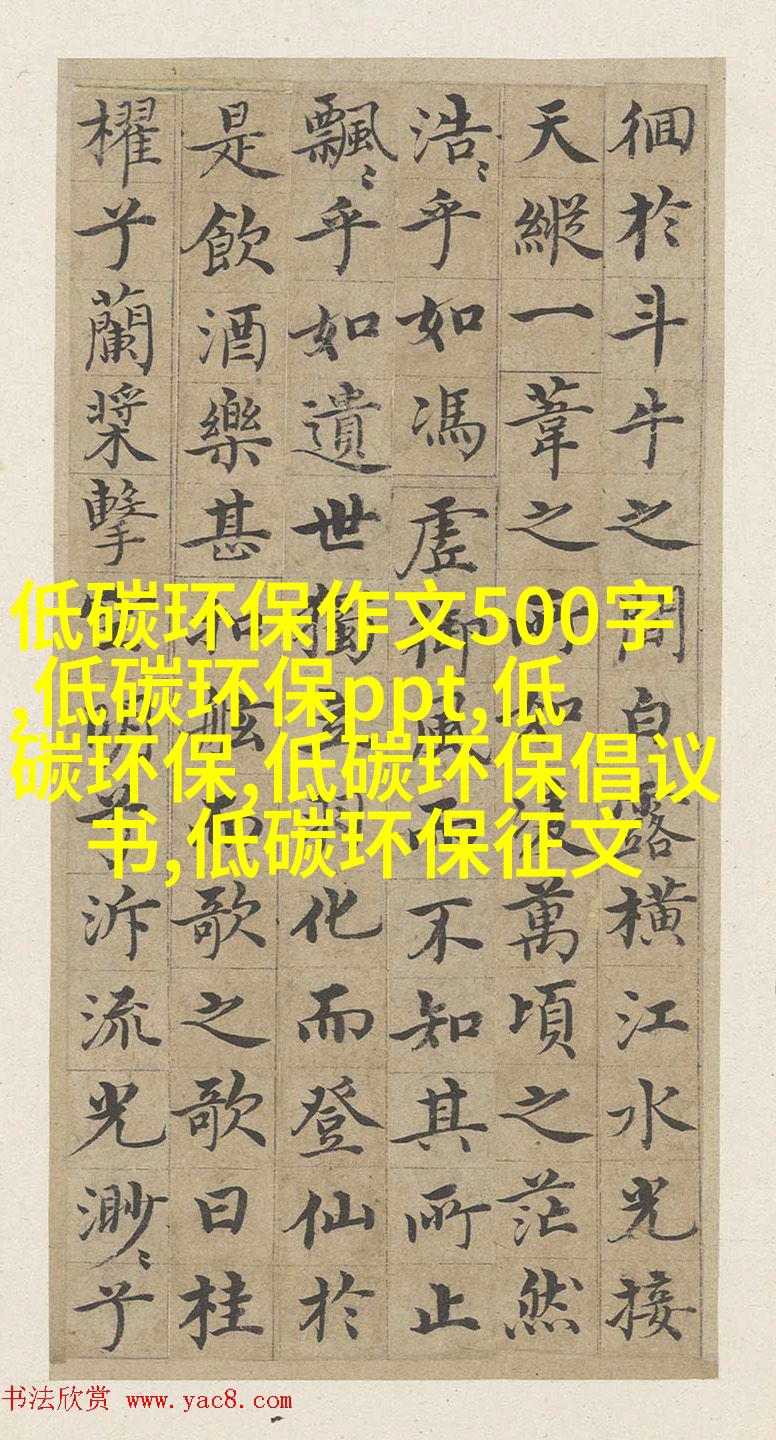 徊於斗牛之間白露橫江水光接
天縱一葦之所如淩萬頃之茫然
浩〻乎如馮虛御風而不知其所止
飄〻乎如遺世獨立羽化而登仙於
是飲酒樂甚扣舷而歌之歌曰桂
櫂兮蘭槳擊空明兮泝流光渺〻兮
低碳环保作文500字
,低碳环保ppt,低
碳环保,低碳环保倡议
书,低碳环保征文
书法欣赏 www.yac8.com